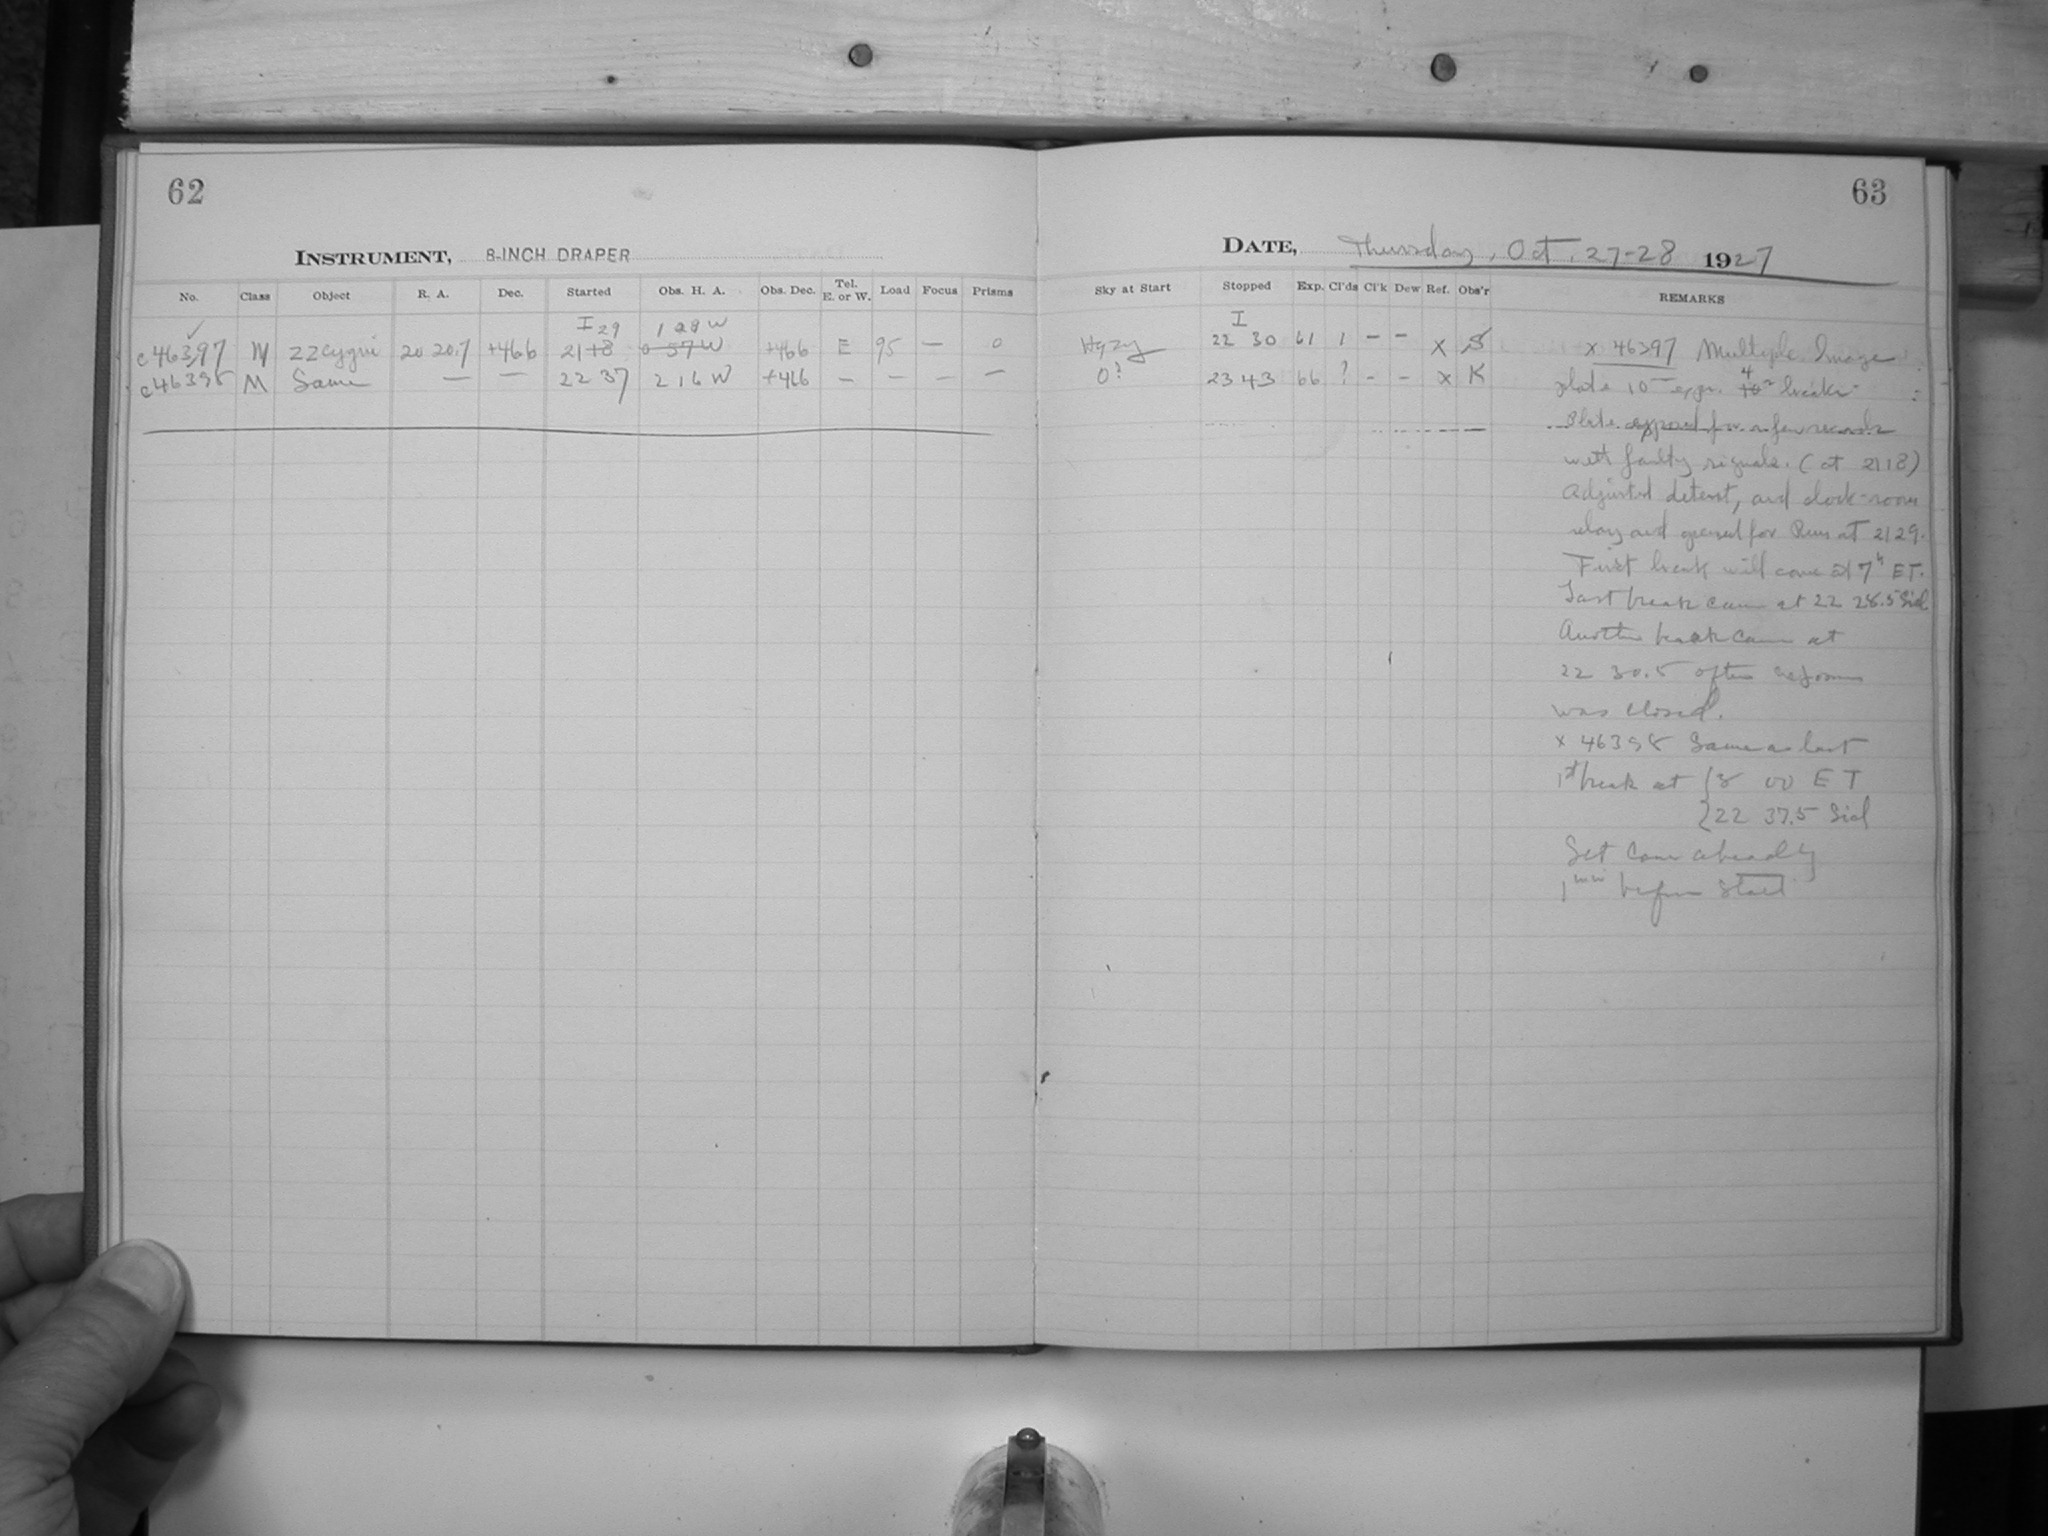 62
INSTRUMENT, 8-INCH DRAPER
No. Class Object R. A. Dec. Started Obs. H. A. Obs. Dec. Tel. E. or W. Load Focus Prisms
I 29 1 29 W
c46397 M ZZ Cygni 20 20.7 +466 21 18 0 57 W +466 E 95 — 0
c46398 M Same — — 22 37 2 16 W +466 — — — —
63
DATE, Thursday, Oct. 27-28 1927
Sky at Start Stopped Exp. Cl'ds Cl'k Dew Ref. Obs'r REMARKS
I
Hazy 22 30 61 1 — — x S
0? 23 43 66 ? - - x K
x 46397 Multiple Image
plate 10 m expr. 4 10 s breaks
Plate exposed for a few seconds
with faulty signals. (at 2118)
Adjusted detent, and clock-room
relay and opened for Run at 2129.
First break will come at 7h ET.
Last break came at 22 28.5 Sid
Another break came at
22 30.5 after
was closed.
x 46398 Same as last
1st break at { 8 00 ET
{ 22 37.5 Sid
Set Cam ahead
1 min before start